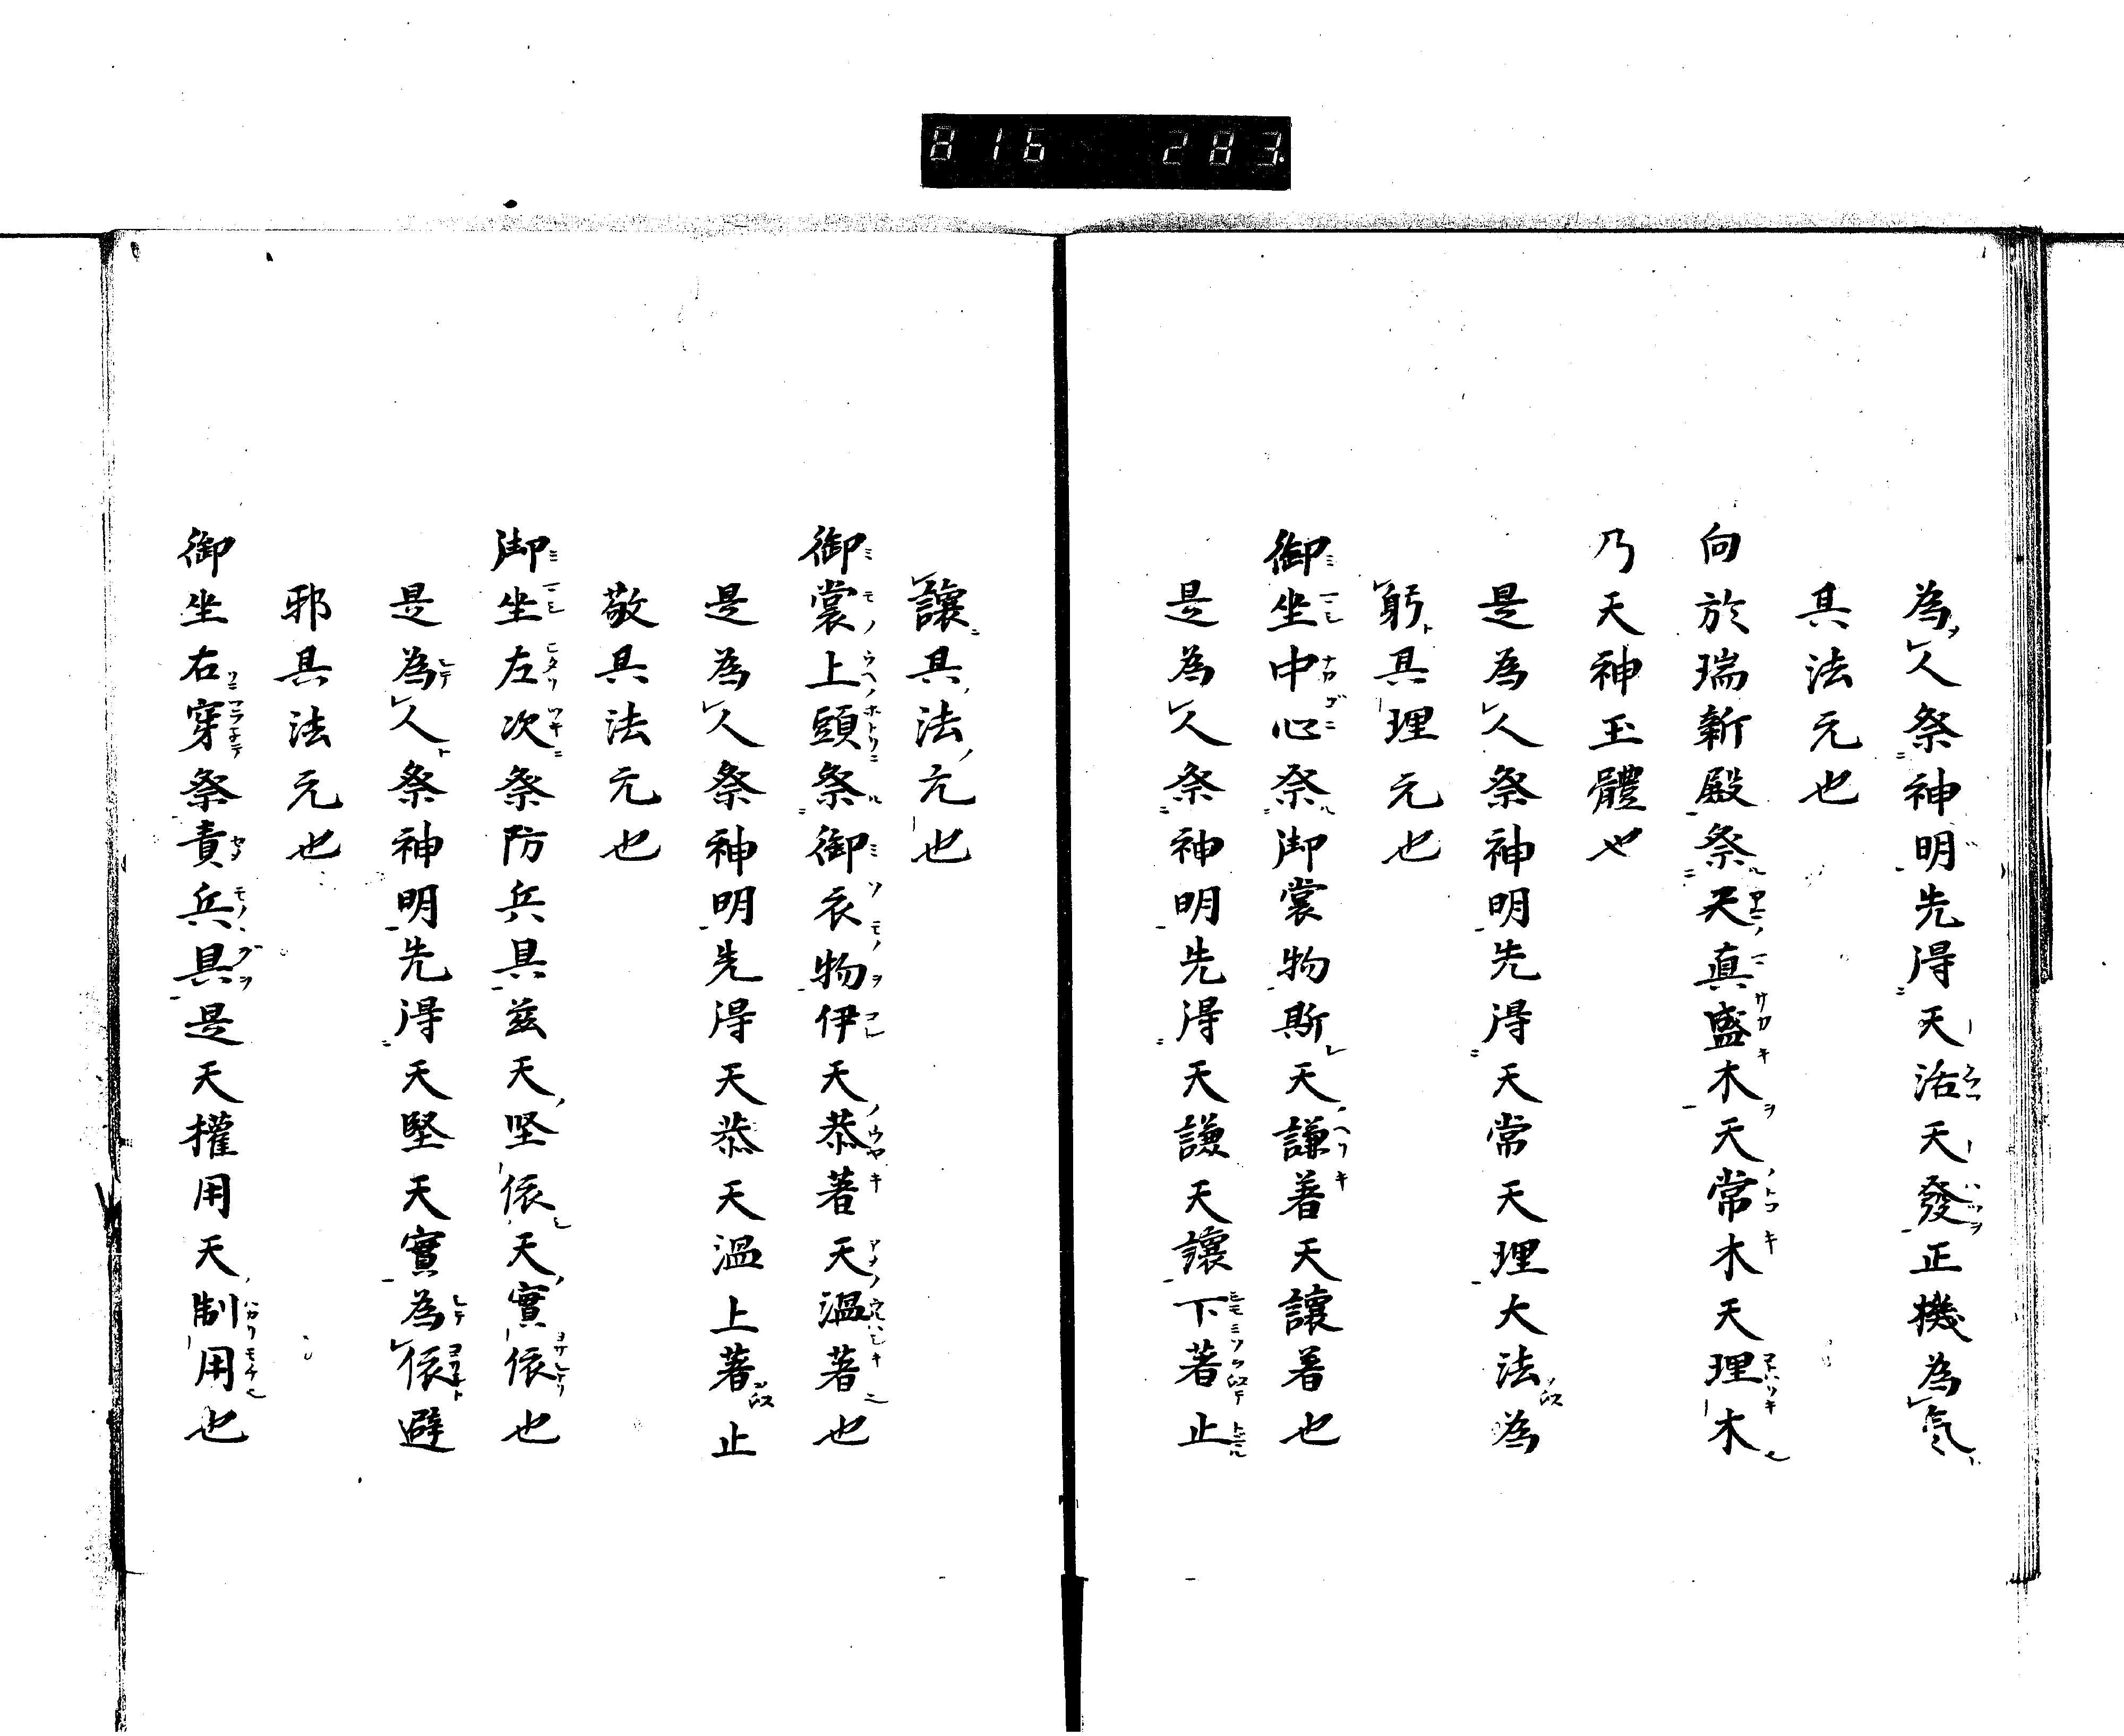 816 283
為人祭神明先得天治天發正機為氣
具法元也
向於瑞新殿祭天真盛木天常木天理木
乃天神玉體也
是為人祭神明先得天常天理大法為
躬具理元也
御坐中心祭御裳物斯天謙着天讓着也
是為人祭神明先得天謙天讓下著止
讓具法元也
御裳上頭祭御衣物伊天恭著天温著也
是為人祭神明先得天恭天温上著止
敬具法元也
御坐左次祭防兵具茲天堅依天實依也
是為人祭神明先得天堅天實為依避
邪具法元也
御坐右穿祭責兵具是天權用天制用也